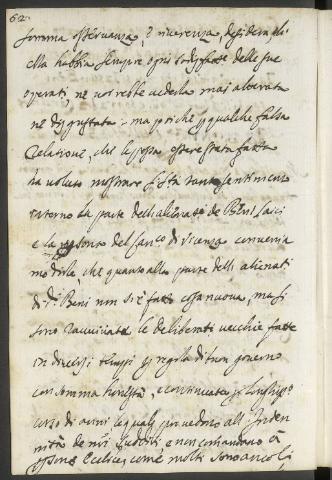 62.
somma osservanza, e riverenza, desidera, ch'
ella habbia sempre ogni sodisfatt.e delle sue
operati, ne vorrebbe vederla mai alterata
ne disgustata: ma poiche p qualche falsa
relatione, che le possa essere stata fatta
ha voluto mostrare S. Stà tanto sentimento
intorno la parte dell'alienat.e de Beni laici
e la persona del Sarico di vicenza converria
mo dirle che quanto alla parte delli alienati
di d.i Beni non si è fatta cosa nuova, ma si
sono ravvivate le deliberati vecchie fatte
in diversi tempi p regola di buon governo
con somma honestà, e continuata p longhiss.o
corso di anni le quali provedono all' Inden
nità de n.ri sudditi e non comandano à
persone Ecclice, come molti sono ancor li